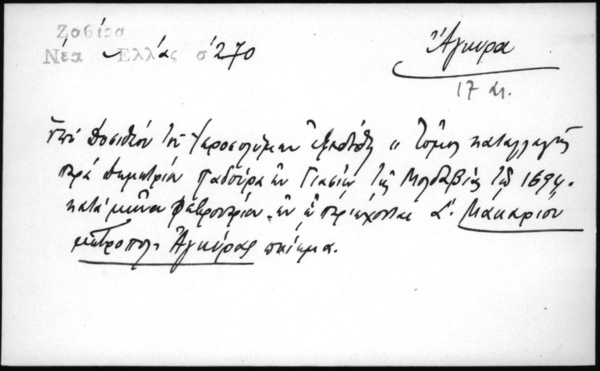 Ζαβίρα
Νέα Ελλάς σ 270
Ἄγκυρα
17 αι.
ὑπὸ Δοσιθέου τοῦ Ἱεροσολύμων ἐξεδόθη "Τόμος καταλλαγῆς
παρὰ Δημητρίου Παδούρα ἐν Γιασίῳ τῆς Μολδαβίας τῷ 1694.
κατὰ μῆνα Φεβρουάριον, ἐν ᾧ περιέχονται α'. Μακαρίου
μητροπολ. Ἀγκύρας ποίημα.